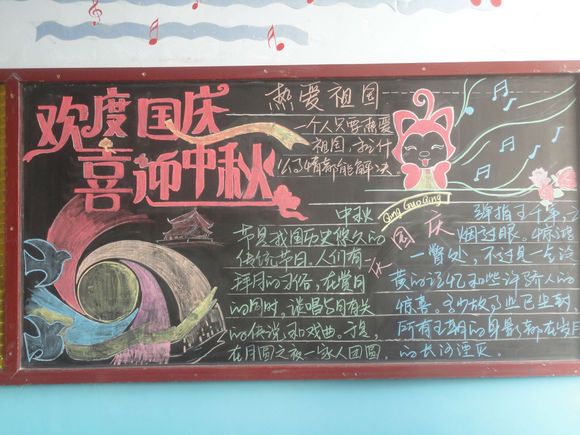 欢度国庆
喜迎中秋
热爱祖国
一个人只要热爱
祖国,
情都能解决。
Qing Guo Qing
中秋
节是我国历史悠久的
传统节日。人们有
拜月的习俗,在赏月
的同时,谈唱与月有关
的传说和戏曲。于是,
在月圆之夜一家人团圆
国庆
弹指五千年,
烟过眼。惊波
一瞥处,不过是一台泛
黄的记忆和些许阶人的
惊喜。
所有
的长河湮灭。